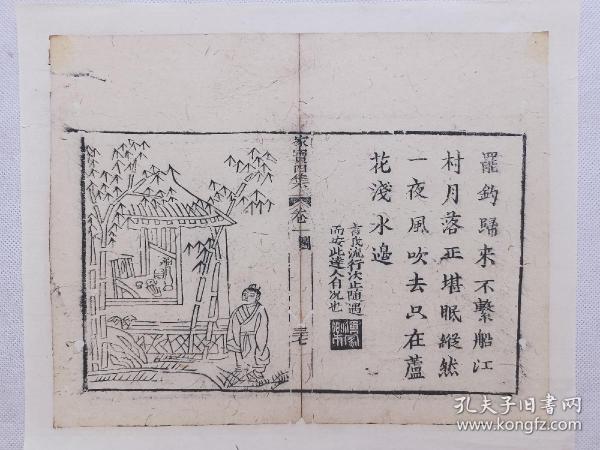 罷釣歸來不繫船江
村月落正堪眠縱然
一夜風吹去只在蘆
花淺水邊
言民流行坎止隨遇
而安此達人自况也
家寶四集
卷一
三七
孔夫子旧书网
www.kongfz.com